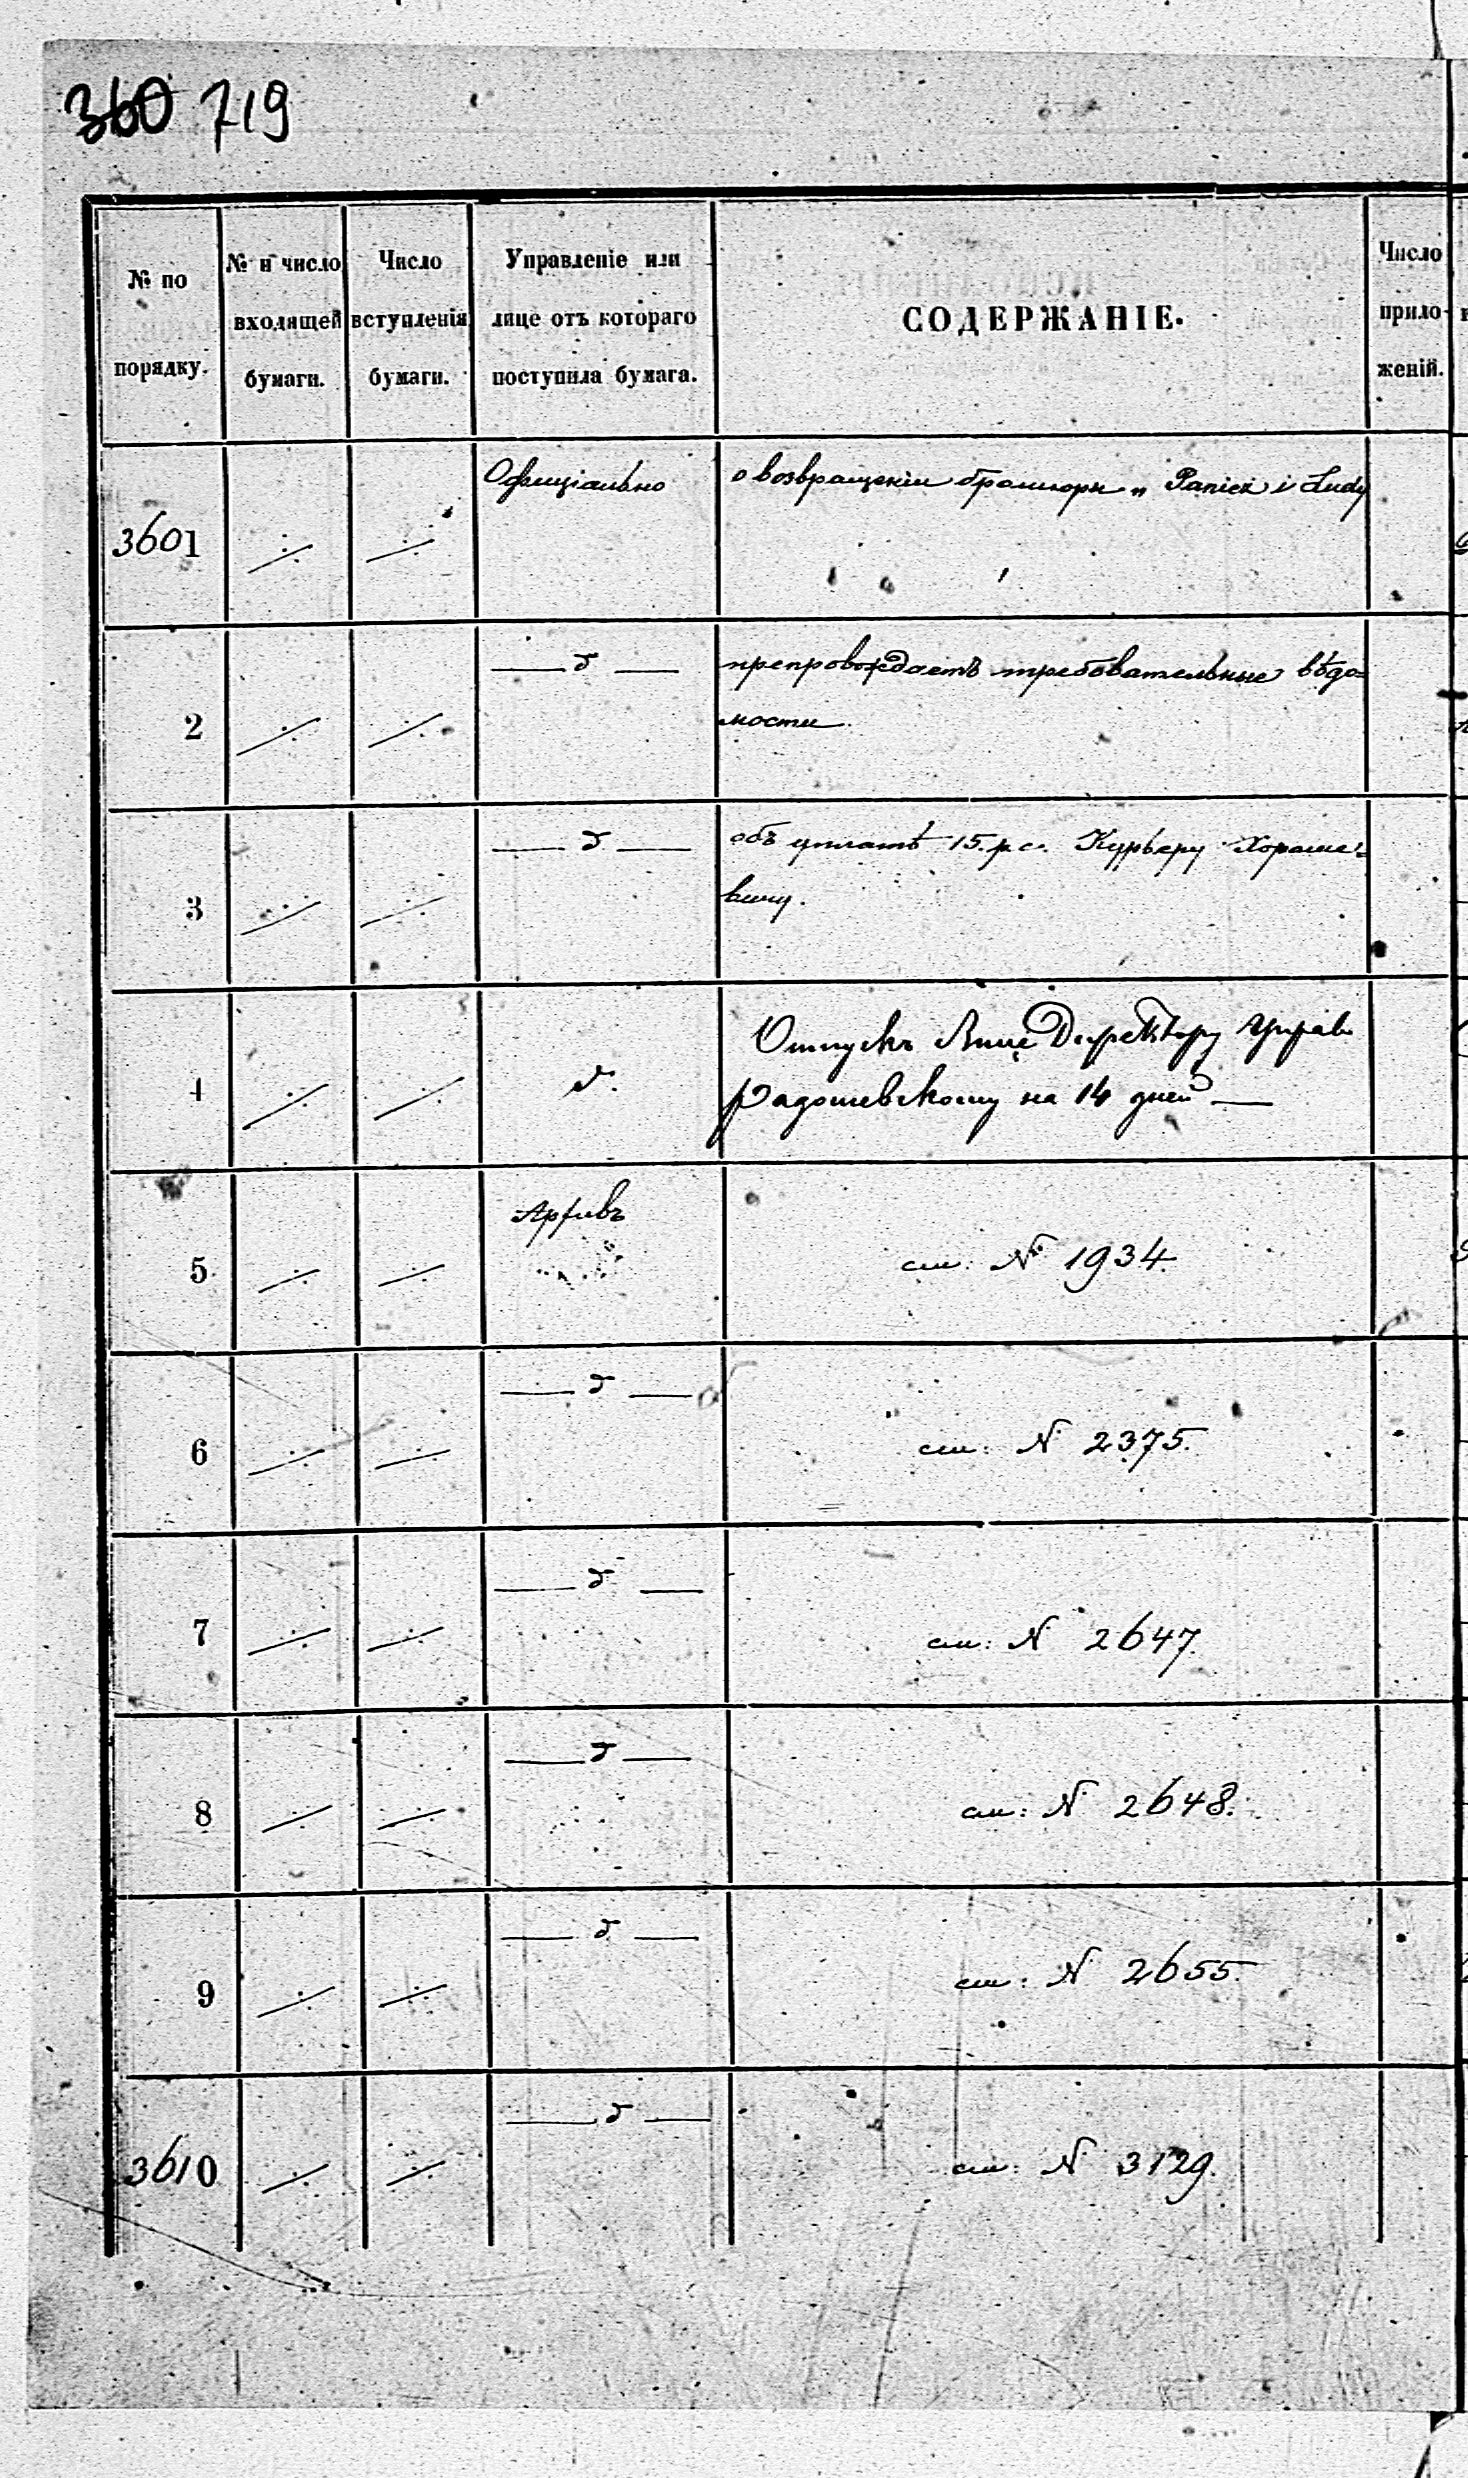 360 719
№ по порядку.
№ и число входящей бумаги.
Число вступленія бумаги.
Управленіе или лице отъ котораго поступила бумага.
СОДЕРЖАНІЕ.
Число прило- женій.
3601 ·/. ·/. Офиціально о возвращеніи брошюры „Panicz i Ludy
2 ·/. ·/. — d — препровождаетъ требовательные вѣдо=
мости.
3 ·/. ·/. — d — объ уплатѣ 15. р. с. Курьеру Хороше=
вичу.
4 ·/. ·/. d. Отпускъ Вице Директору Управ
Радошевскому на 14 дней —
5 ·/. ·/. Архивъ см: № 1934.
6 ·/. ·/. — d — см: N 2375.
7 ·/. ·/. — d — см: N 2647.
8 ·/. ·/. — d — см: N 2648.
9 ·/. ·/. — d — см: N 2655.
3610 ·/. ·/. — d — см: N 3129.